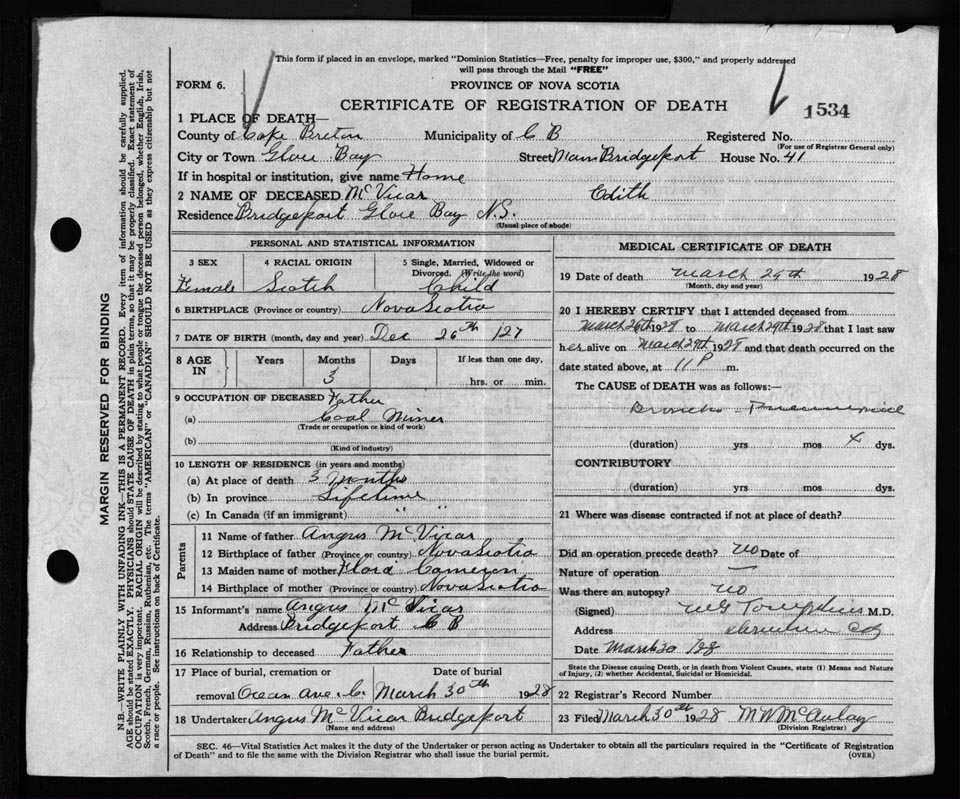 This form if placed in an envelope, marked "Dominion Statistics—Free, penalty for improper use, $300," and properly addressed
will pass through the Mail "FREE"
FORM 6.
PROVINCE OF NOVA SCOTIA
CERTIFICATE OF REGISTRATION OF DEATH
1534
1 PLACE OF DEATH—
County of Cape Breton Municipality of C B Registered No.
(For use of Registrar General only)
City or Town Glace Bay Street Main Bridgeport House No. 41
If in hospital or institution, give name Home
2 NAME OF DECEASED McVicar Edith
Residence Bridgeport Glace Bay N.S.
(Usual place of abode)
PERSONAL AND STATISTICAL INFORMATION
3 SEX 4 RACIAL ORIGIN 5 Single, Married, Widowed or
Divorced. (Write the word)
Female Scotch Child
6 BIRTHPLACE (Province or country) Nova Scotia
7 DATE OF BIRTH (month, day and year) Dec 26th /27
8 AGE IN Years Months Days If less than one day,
3 hrs. or min.
9 OCCUPATION OF DECEASED Father
(a) Coal Miner
(Trade or occupation or kind of work)
(b)
(Kind of industry)
10 LENGTH OF RESIDENCE (in years and months)
(a) At place of death 3 Months
(b) In province Lifetime
(c) In Canada (if an immigrant) " "
Parents
11 Name of father Angus McVicar
12 Birthplace of father (Province or country) Nova Scotia
13 Maiden name of mother Flora Cameron
14 Birthplace of mother (Province or country) Nova Scotia
15 Informant's name Angus McVicar
Address Bridgeport C B
16 Relationship to deceased Father
17 Place of burial, cremation or Date of burial
removal Ocean Ave. C. March 30th 1928
18 Undertaker Angus McVicar Bridgeport
(Name and address)
MEDICAL CERTIFICATE OF DEATH
19 Date of death March 29th 1928
(Month, day and year)
20 I HEREBY CERTIFY that I attended deceased from
March 26th 1928 to March 29th 1928 that I last saw
her alive on March 29th 1928 and that death occurred on the
date stated above, at 11 P m.
The CAUSE of DEATH was as follows:—
Broncho-Pneumonia
(duration) yrs mos dys.
CONTRIBUTORY
(duration) yrs mos dys.
21 Where was disease contracted if not at place of death?
Did an operation precede death? No Date of
Nature of operation —
Was there an autopsy? No
(Signed) Tompkins M.D.
Address
Date March 30 /28
State the Disease causing Death, or in death from Violent Causes, state (1) Means and Nature
of Injury, (2) whether Accidental, Suicidal or Homicidal.
22 Registrar's Record Number
23 Filed March 30th 1928 M W McAulay
(Division Registrar)
SEC. 46—Vital Statistics Act makes it the duty of the Undertaker or person acting as Undertaker to obtain all the particulars required in the "Certificate of Registration
of Death" and to file the same with the Division Registrar who shall issue the burial permit.
(OVER)
MARGIN RESERVED FOR BINDING
N.B.—WRITE PLAINLY WITH UNFADING INK—THIS IS A PERMANENT RECORD. Every item of information should be carefully supplied.
AGE should be stated EXACTLY. PHYSICIANS should STATE CAUSE OF DEATH in plain terms, so that it may be properly classified. Exact statement of
OCCUPATION is very important. RACIAL ORIGIN will be described by stating to what people or tongue the deceased person belonged, whether English, Irish,
Scotch, French, German, Russian, Ruthenian, etc. The terms "AMERICAN" or "CANADIAN" SHOULD NOT BE USED as they express citizenship but not
a race or people. See instructions on back of Certificate.